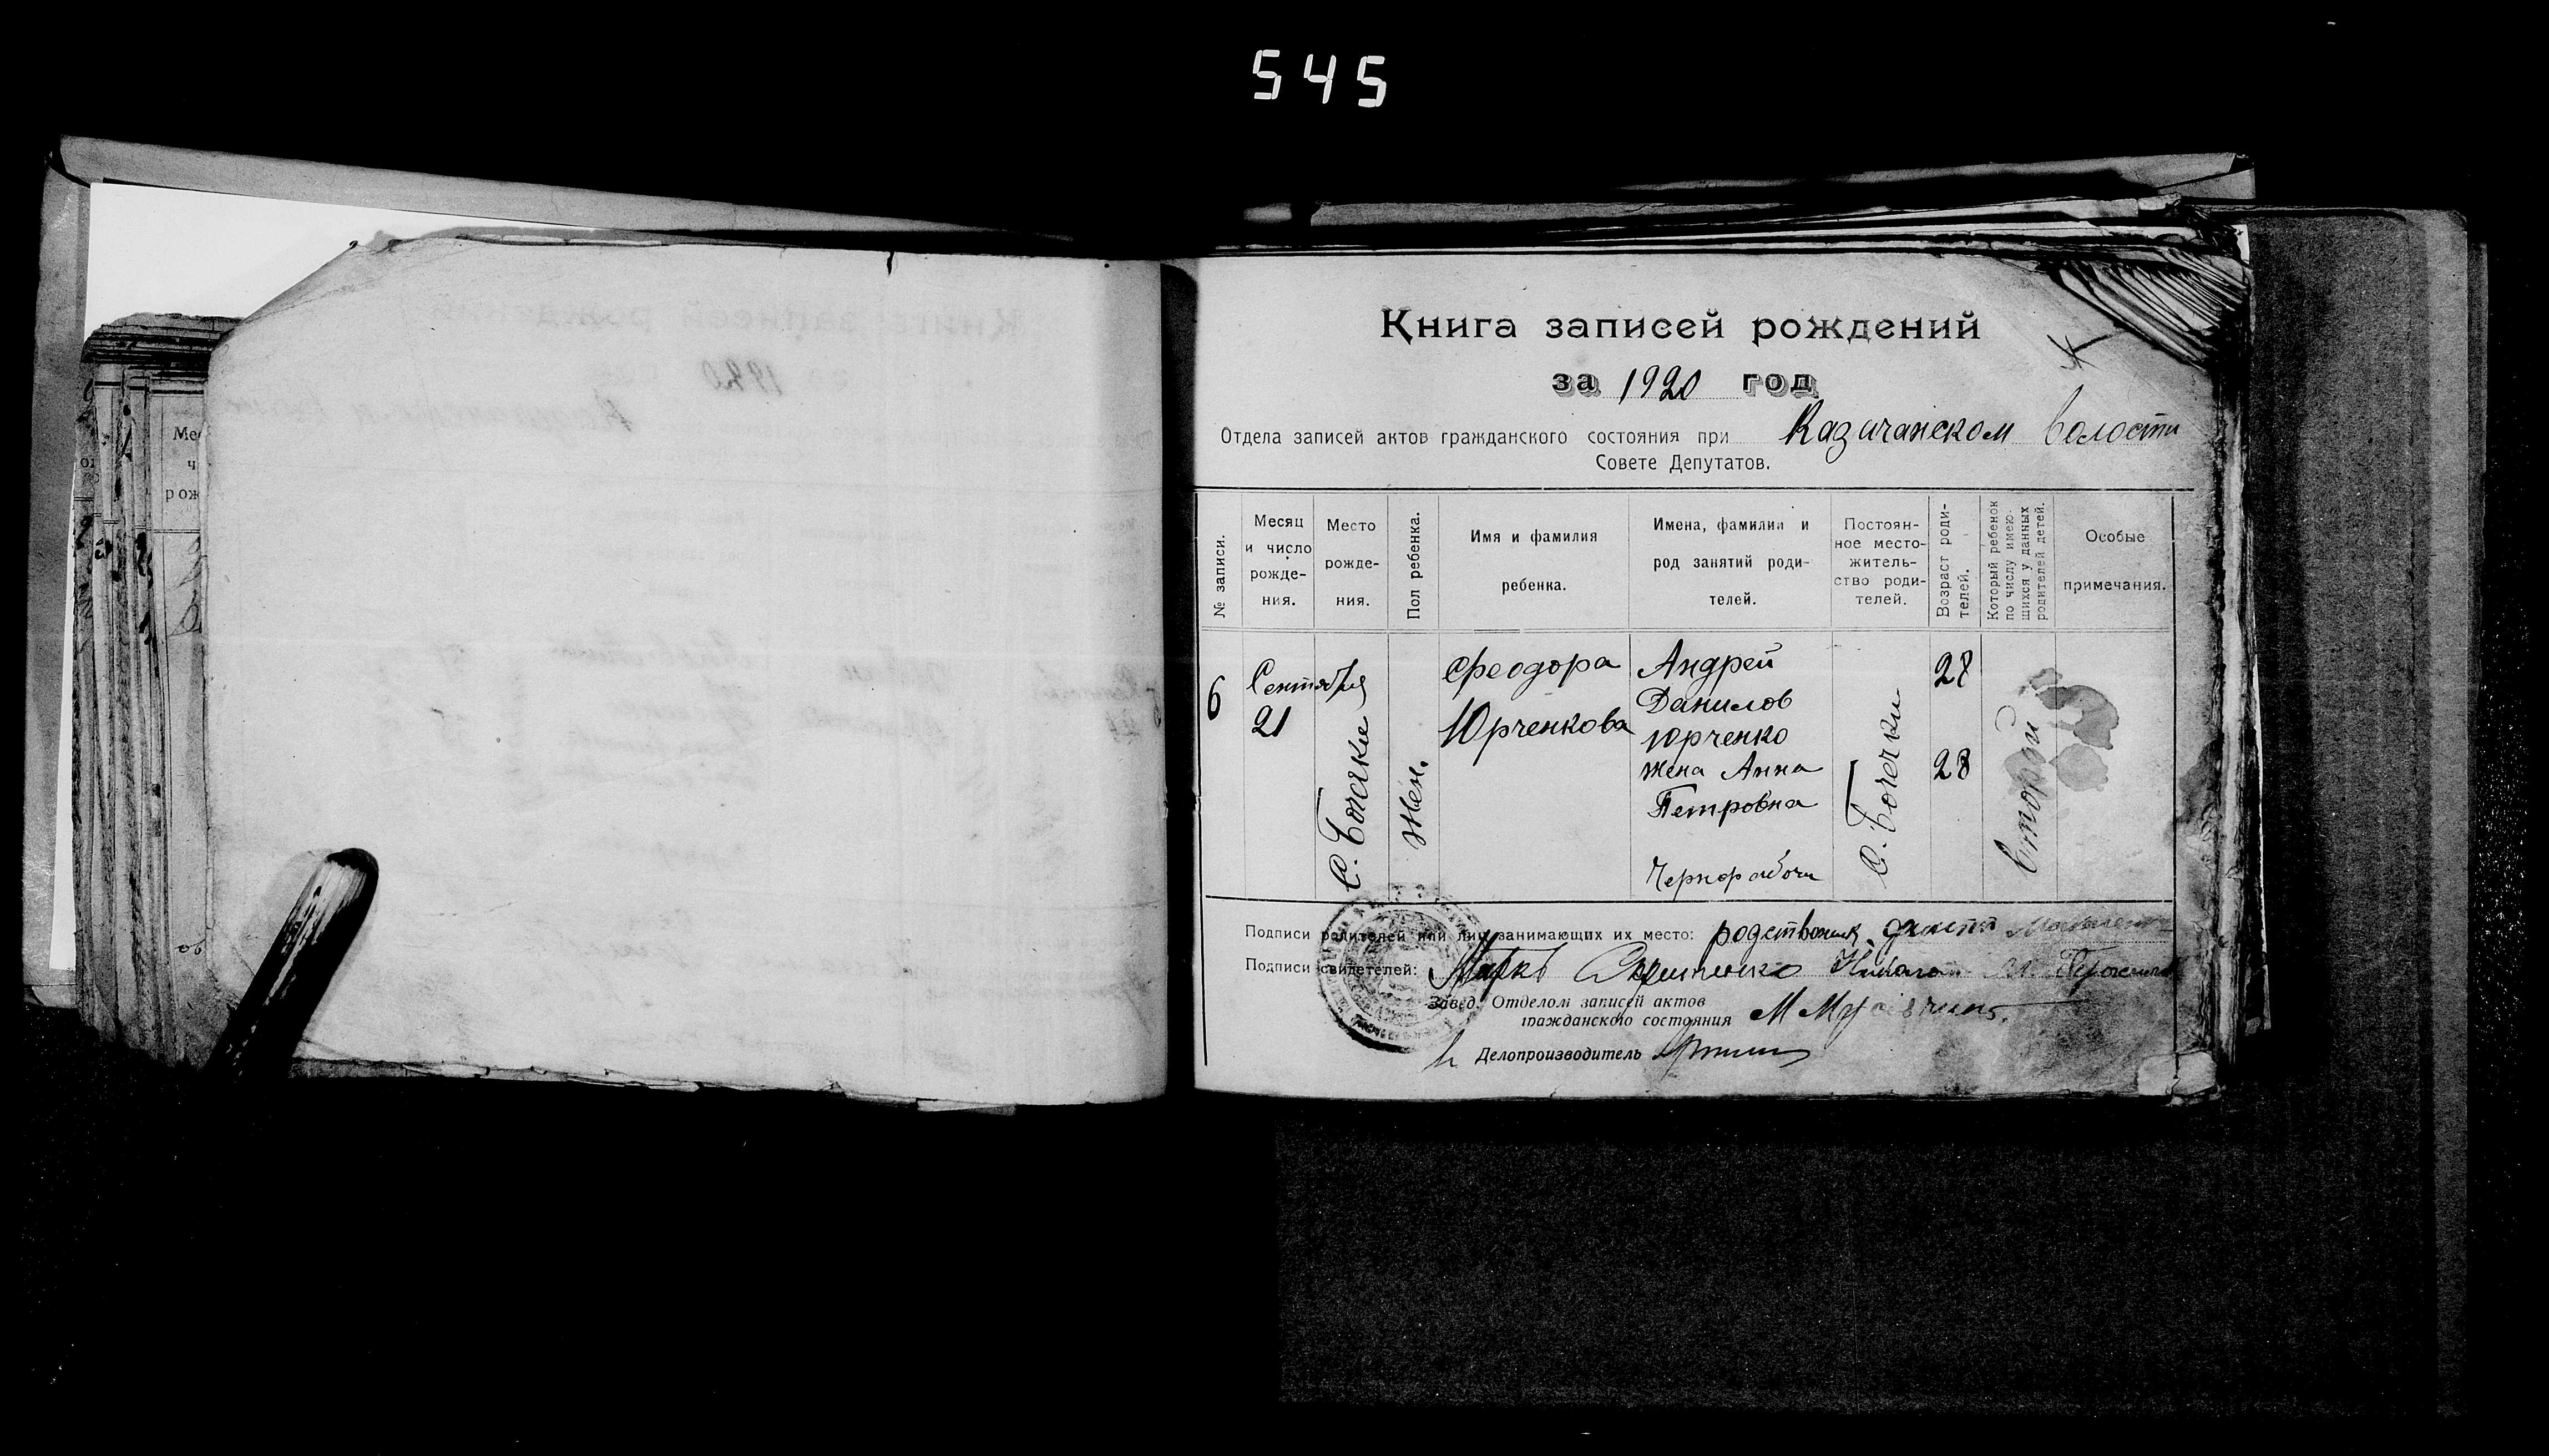 545
Книга записей рождений
за 1920 год
Отдела записей актов гражданского состояния при Казичанском Волости
Совете Депутатов.
№ записи.
Месяц
и число
рожде-
ния.
Место
рожде-
ния.
Пол ребенка.
Имя и фамилия
ребенка.
Имена, фамилии и
род занятий роди-
телей.
Постоян-
ное место-
житель-
ство роди-
телей.
Возраст роди-
телей.
Который ребенок
по числу имею-
щихся у данных
родителей детей.
Особые
примечания.
6
Сентября
21
С. Бочечки
Жен.
Феодора
Юрченкова
Андрей
Данилов
Юрченко
Жена Анна
Петровна
Чернорабочи
С. Бочечки
28
28
Второй
Подписи родителей или лиц занимающих их место: родственик
Подписи свидетелей: Марко
Завед. Отделом записей актов
гражданского состояния М
Делопроизводитель
Мес
ч
рож